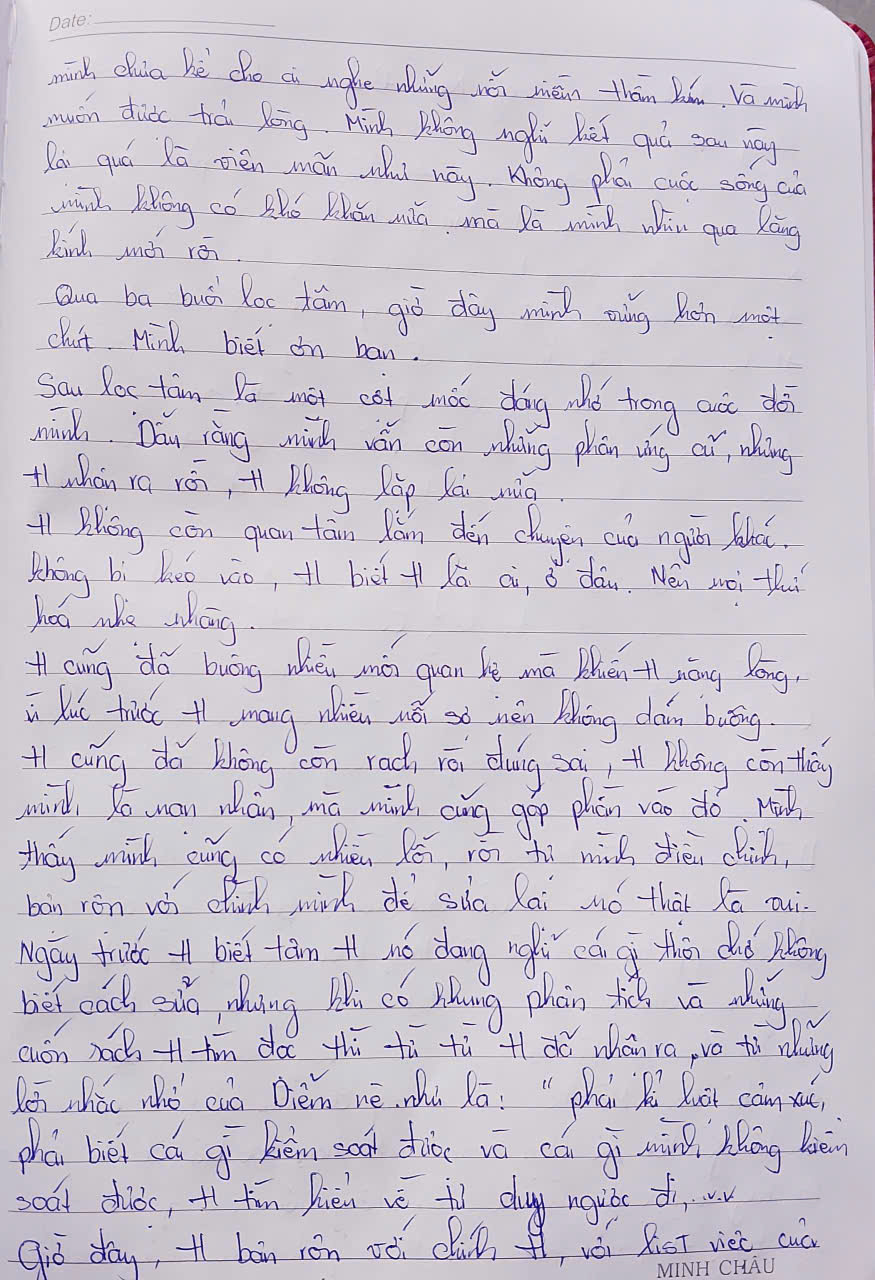 Date:
mình chưa kể cho ai nghe những nỗi niềm thầm kín. Và mình
muốn được trải lòng. Mình không nghĩ kết quả sau này
lại quá là viên mãn như này. Không phải cuộc sống của
mình không có khó khăn nữa mà là mình nhìn qua lăng
kính mới rồi.
Qua ba buổi lọc tâm, giờ đây mình vững hơn một
chút. Mình biết ơn bạn.
Sau lọc tâm là một cột mốc đáng nhớ trong cuộc đời
mình. Dẫu rằng mình vẫn còn những phản ứng cũ, nhưng
H nhận ra rồi, H không lặp lại nữa.
H không còn quan tâm lắm đến chuyện của người khác,
không bị kéo vào, H biết H là ai, ở đâu. Nên mọi thứ
hoá nhẹ nhàng.
H cũng đã buông nhiều mối quan hệ mà khiến H nặng lòng,
vì lúc trước H mang nhiều nỗi sợ nên không dám buông.
H cũng đã không còn rạch ròi đúng sai, H không còn thấy
mình là nạn nhân, mà mình cũng góp phần vào đó. Mình
thấy mình cũng có nhiều lỗi, rồi tự mình điều chỉnh,
bận rộn với chính mình để sửa lại nó thật là vui.
Ngày trước H biết tâm H nó đang nghĩ cái gì thôi chứ không
biết cách sửa, nhưng khi có khung phân tích và những
cuốn sách H tìm đọc thì từ từ H đã nhận ra, và từ những
lời nhắc nhở của Diễm nè. như là: " phải kỉ luật cảm xúc,
phải biết cái gì kiểm soát được và cái gì mình không kiểm
soát được, H tìm hiểu về tư duy ngược đi, .v.v
Giờ đây, H bận rộn với chính H, với list việc của
MINH CHÂU